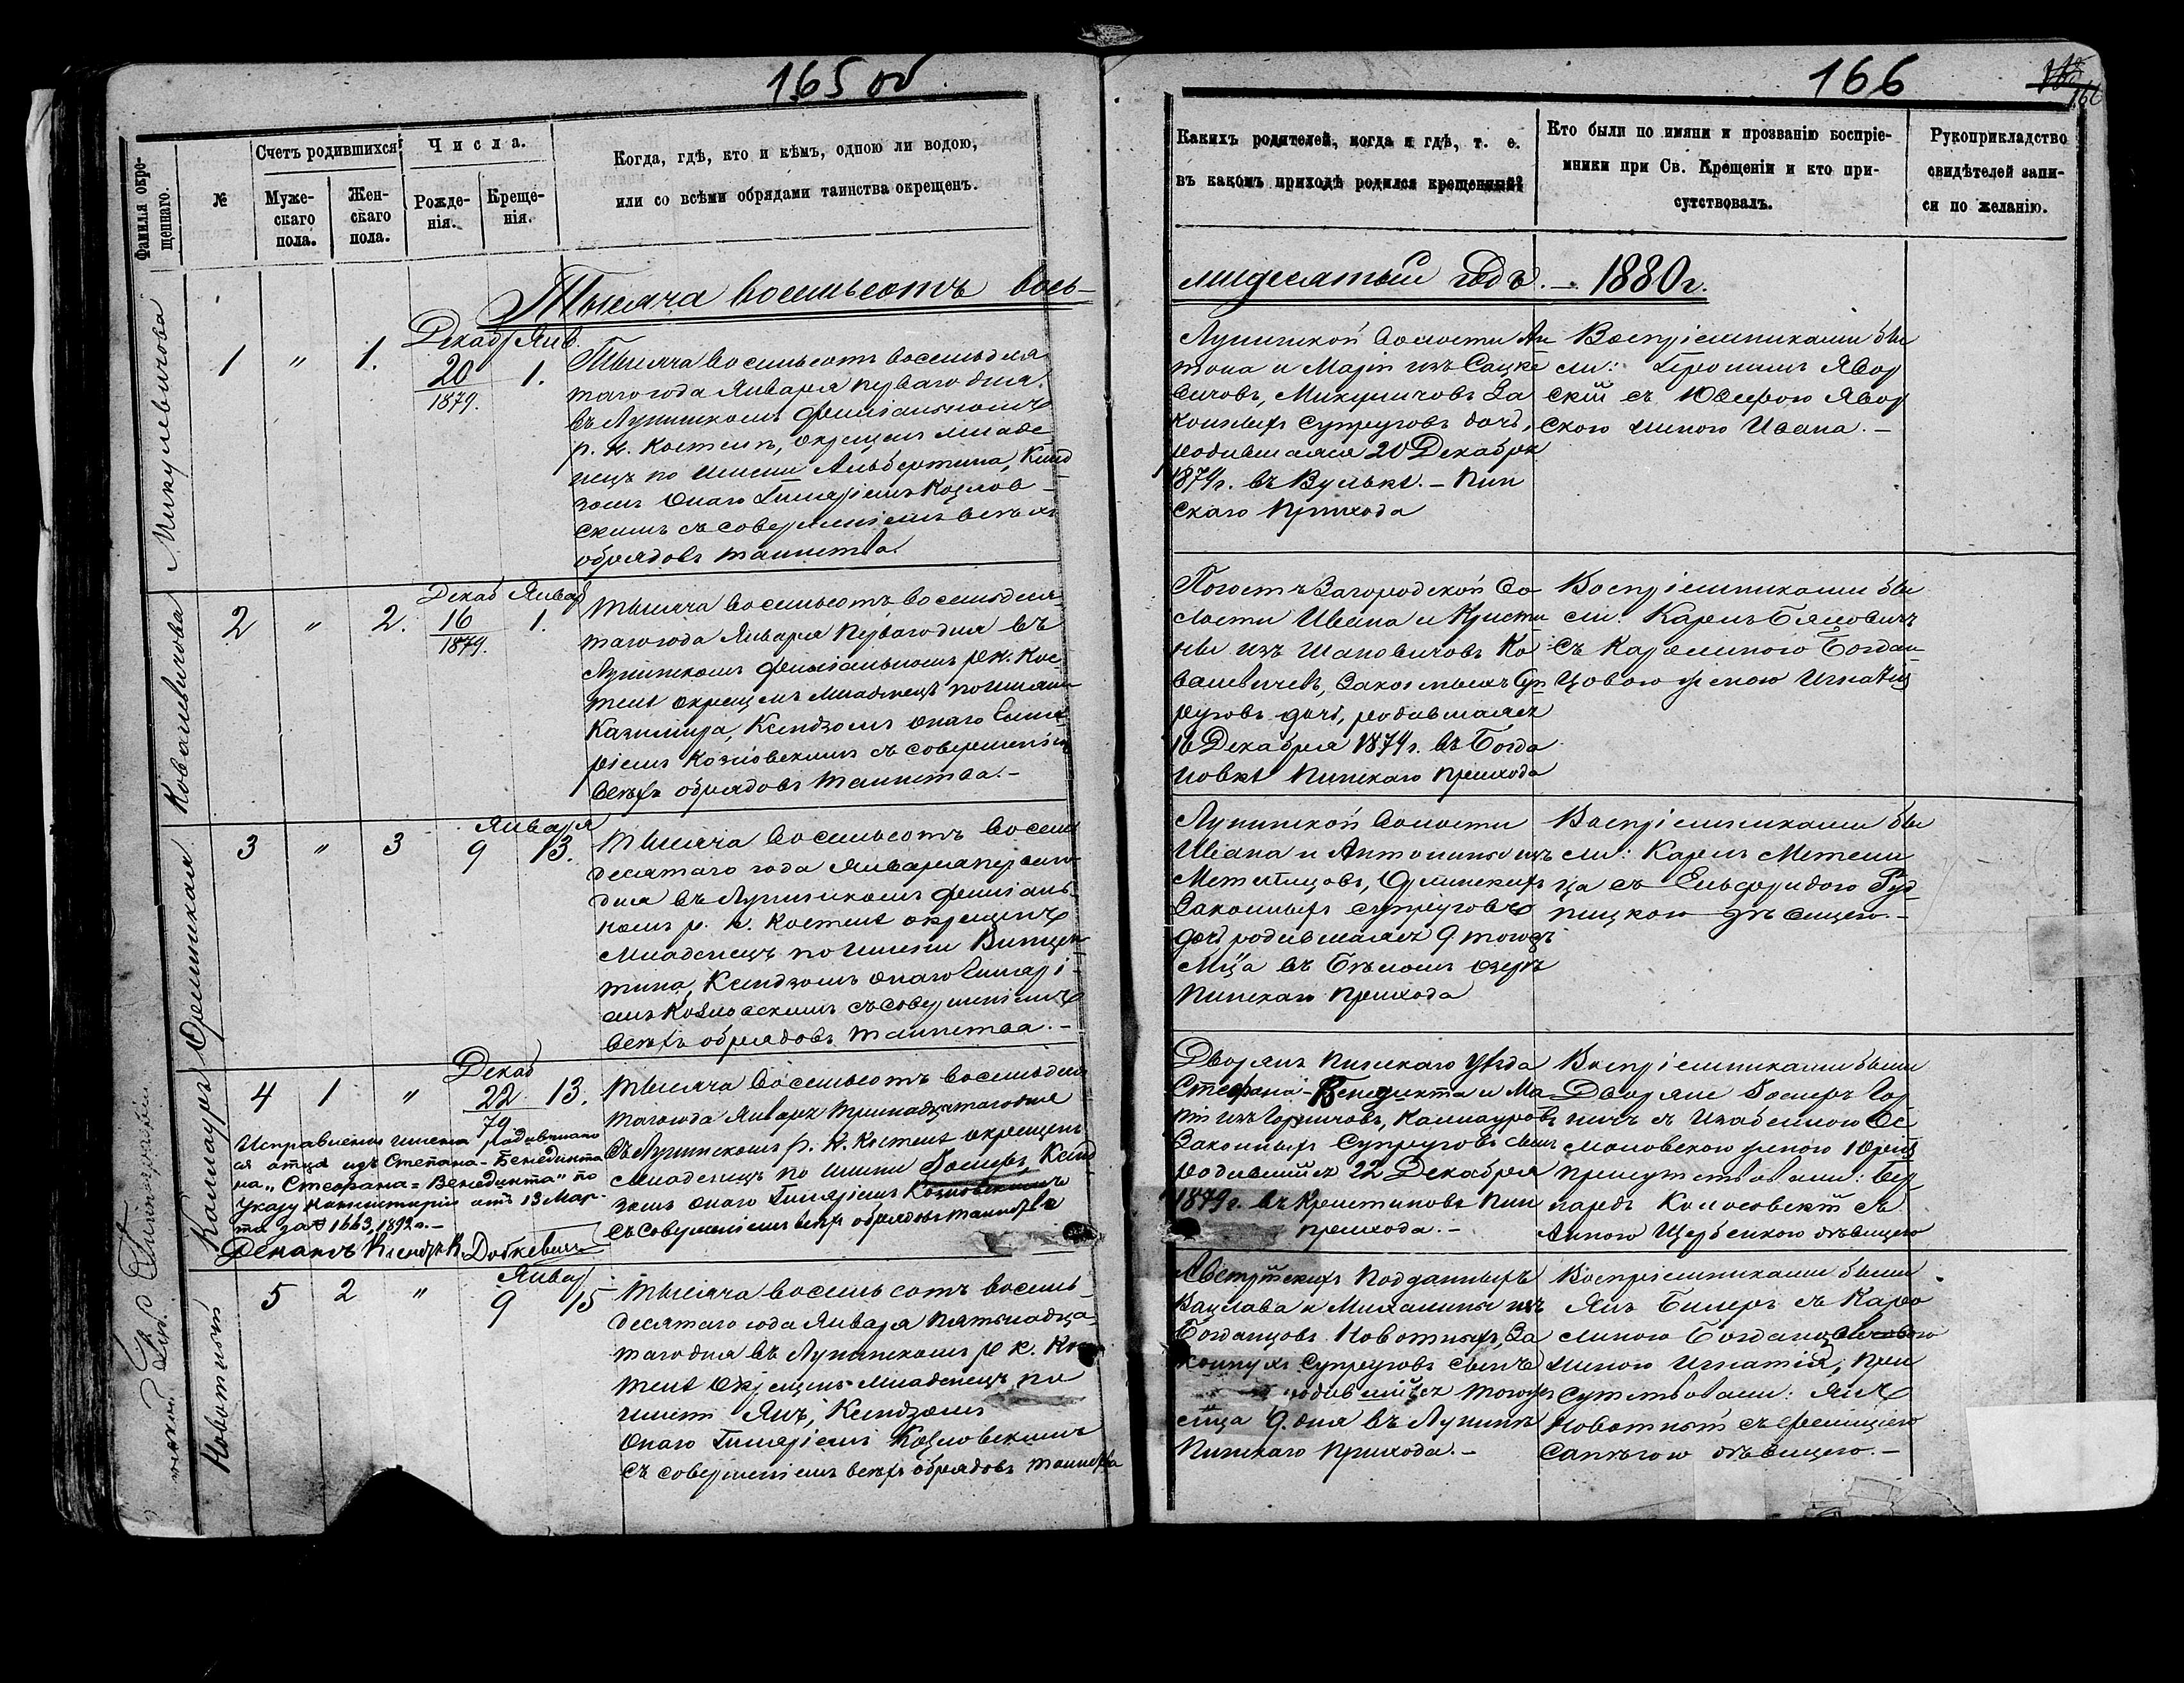 165 об
166
Фамилія окрещеннаго.
№
Счетъ родившихся
Мужескаго пола.
Женскаго пола.
Числа.
Рожденія.
Крещенія.
Когда, гдѣ, кто и кѣмъ, одною ли водою,
или со всѣми обрядами таинства окрещенъ.
Какихъ родителей, когда и гдѣ, т. е.
въ какомъ приходѣ родился крещенный?
Кто были по имяни и прозванію воспріе-
мники при Св. Крещеніи и кто при-
сутствовалъ.
Рукоприкладство
свидѣтелей запи-
си по желанію.
Тысяча восемьсотъ вось-
мидесятый годъ. – 1880 г.
Микулевичова
1 " 1.
Декаб Янв.
20 1.
1879.
Тысяча восемьсотъ восемьдеся
таго года Января перваго дня
въ Лунинскомъ филіальномъ
р. к. костелѣ, окрещенъ младе
нецъ по имени Альбертина, Ксен
зомъ онаго Гиляріемъ Козлов-
скимъ съ совершеніемъ всѣхъ
обрядовъ таинства.
Лунинской волости Ан
тона и Маріи изъ Сацке
вичовъ, Микуличовъ За
конныхъ супруговъ дочь,
родившаяся 20 Декабря
1879 г. въ Вулькѣ. – Пин
скаго Прихода
Воспріемниками бы
ли: Геронимъ Явор
скій съ Юзефою Явор
ского женою Ивана. –
Ковалевичова
2 " 2.
Декаб Январ
16 1.
1879.
Тысяча восемьсотъ восемьдеся
таго года Января перваго дня въ
Лунинскомъ филіальномъ р. к. кос
телѣ окрещенъ младенецъ по имени
Казимира, Ксендзомъ онаго Гиля
ріемъ Козловскимъ съ совершеніемъ
всѣхъ обрядовъ таинства. –
Погостъ Загородской во
лости Ивана и Кристи
ны изъ Шановичовъ Ко
валевичей, Законныхъ Суп
руговъ дочь, родившаяся
16 Декабря 1879 г. въ Богда
новкѣ Пинскаго прихода
Воспріемниками бы
ли: Карлъ
съ Каролиною Богдан
цовою женою Игнатія
3 " 3
Января
9 13.
Тысяча восемьсотъ восемь
десятаго года Января перваго
дня въ Лунинскомъ филіаль
номъ р. к. костелѣ окрещенъ
младенецъ по имени Винцен
тина, Ксендзомъ онаго Гиляріе
мъ Козловскимъ съ совершеніемъ
всѣхъ обрядовъ таинства. –
Лунинской волости
Ивана и Антонины изъ
Законныхъ супруговъ
дочь родившаяся 9 тогожъ
Мца въ Бѣломъ озерѣ
Пинскаго прихода
Воспріемниками бы
ли: Карлъ Метели
ца съ Ельфридою Руд
ницкою дѣвицею. –
Калиауръ
4 1 "
Декаб
22 13.
79
Тысяча восемьсотъ восемьдеся
таго года Января тринадцатаго дня
въ Лунинскомъ р. к. костелѣ окрещенъ
младенецъ по имени Гомеръ, Ксенд
зомъ онаго Гиляріемъ Козловскимъ
съ совершеніемъ всѣхъ обрядовъ таинства
Исправленіе имени родившаго
ся отца изъ Степана-Бенедикта
на „Стефана-Венедикта" по
указу Консисторіи отъ 13 Мар-
та за № 1663, 1892 г. –
Деканъ Ксендзъ К.
Дворянъ Пинскаго Уѣзда
Стефана-Венедикта и Ма
ріи изъ
Законныхъ Супруговъ сынъ
родившійся 22 Декабря
1879 г. въ Криштиновѣ Пин
прихода. –
Воспріемниками были
Дворяне Гомеръ Гор
ничъ съ Изабеллою
женою Юрія
присутствовали:
нардъ Колосовскій съ
Анною Щербскою дѣвицею
Новотный
5 2 "
Январ
9 15
Тысяча восемьсотъ восемь-
десятаго года Января пятнадца-
таго дня въ Лунинскомъ р. к. кос
телѣ окрещенъ младенецъ по
имени Янъ, Ксендзомъ
онаго Гиляріемъ Козловскимъ
съ совершеніемъ всѣхъ обрядовъ таинства
Австрійскихъ подданныхъ
Вацлава и Михалины изъ
Богданцовъ Новотныхъ, За
конныхъ Супруговъ сынъ
родившійся тогожъ
мца 9. дня въ Лунинѣ
Пинскаго прихода. –
Воспріемниками были
Янъ Билеръ съ Каро
линою
женою Игнатія; при
сутствовали: Янъ
Новотный съ Фелиціею
Сапѣгою дѣвицею. –